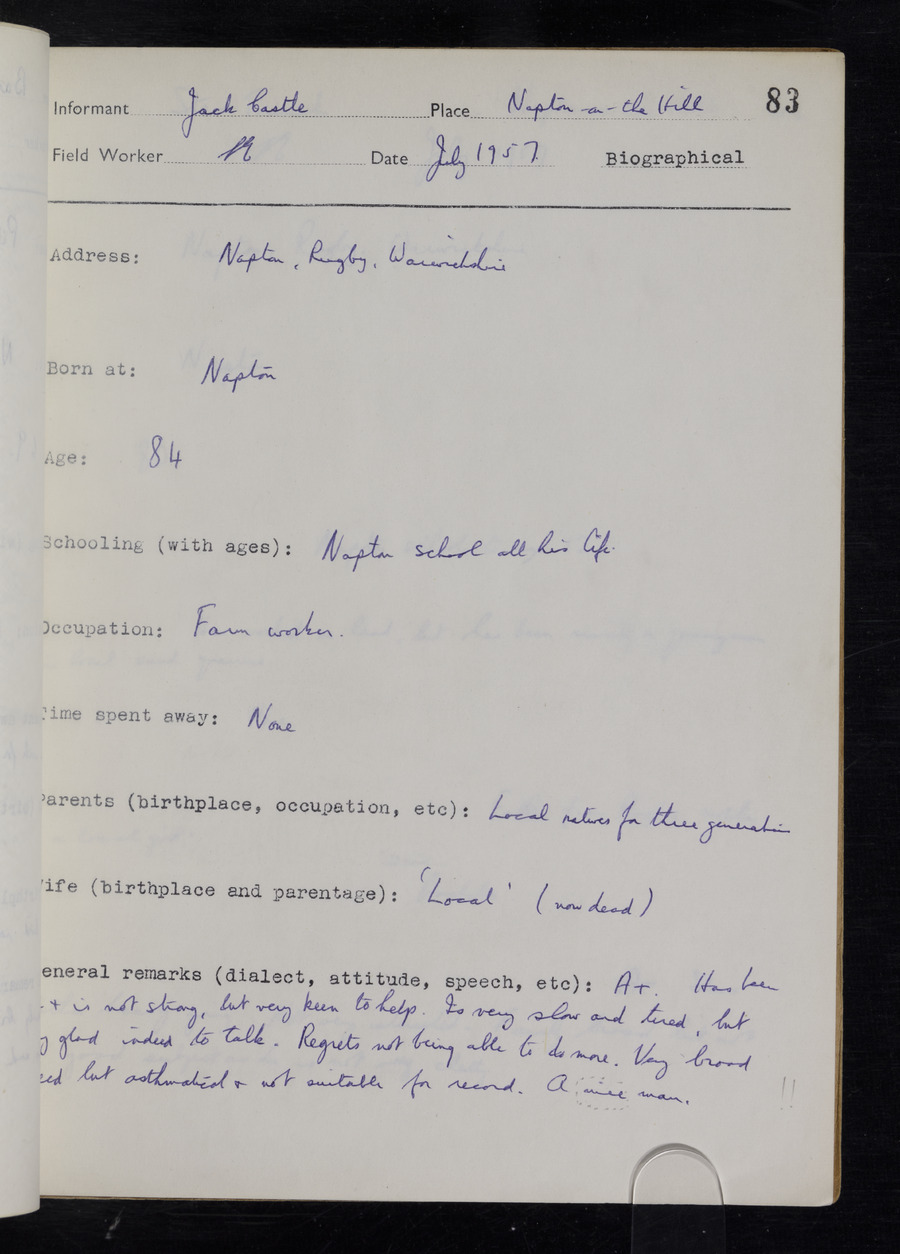 Informant Jack Castle Place Napton-on-the Hill 83
Field Worker Date July 1957. Biographical
Address: Napton, Rugby, Warwickshire
Born at: Napton
Age: 84
Schooling (with ages): Napton school all his life.
Occupation: Farm worker.
Time spent away: None
Parents (birthplace, occupation, etc): Local natives for three generations
Wife (birthplace and parentage): 'Local' (now dead)
eneral remarks (dialect, attitude, speech, etc): A+. Has been
+ is not strong, but very keen to help. Is very slow and tired, but
y glad indeed to talk. Regrets not being able to do more. Very broad
ed but asthmatical + not suitable for record. A nice man. !!